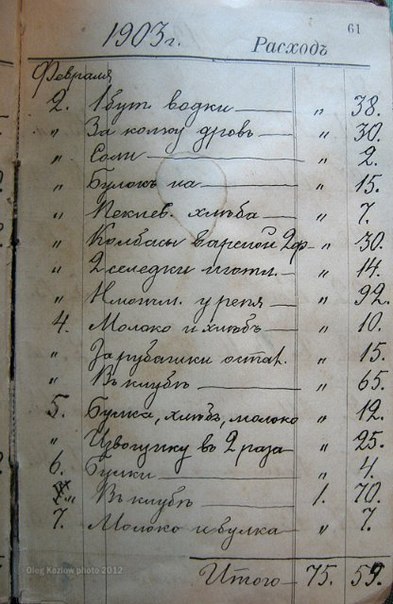 61
1903 г. Расходъ
Февраля
2. 1 бут. водки — " 38.
" За колку дровъ — " 30.
" Соли — " 2.
" Булокъ на — " 15.
" Пеклев. хлѣба — " 7.
" Колбасы вареной 2 ф — " 30.
" 2 селедки шотл. — " 14.
" " 92.
4. Молоко и хлѣбъ — " 10.
" За рубашки остат. " 15.
" Въ клубѣ — " 65.
5. Булка, хлѣбъ, молоко " 12.
" Извощику въ 2 раза — " 25.
6. Булки — " 4.
" Въ клубѣ — 1. 70.
7. Молоко и булка — " 7.
Итого — 75. 59.
Oleg Kozlow photo 2012